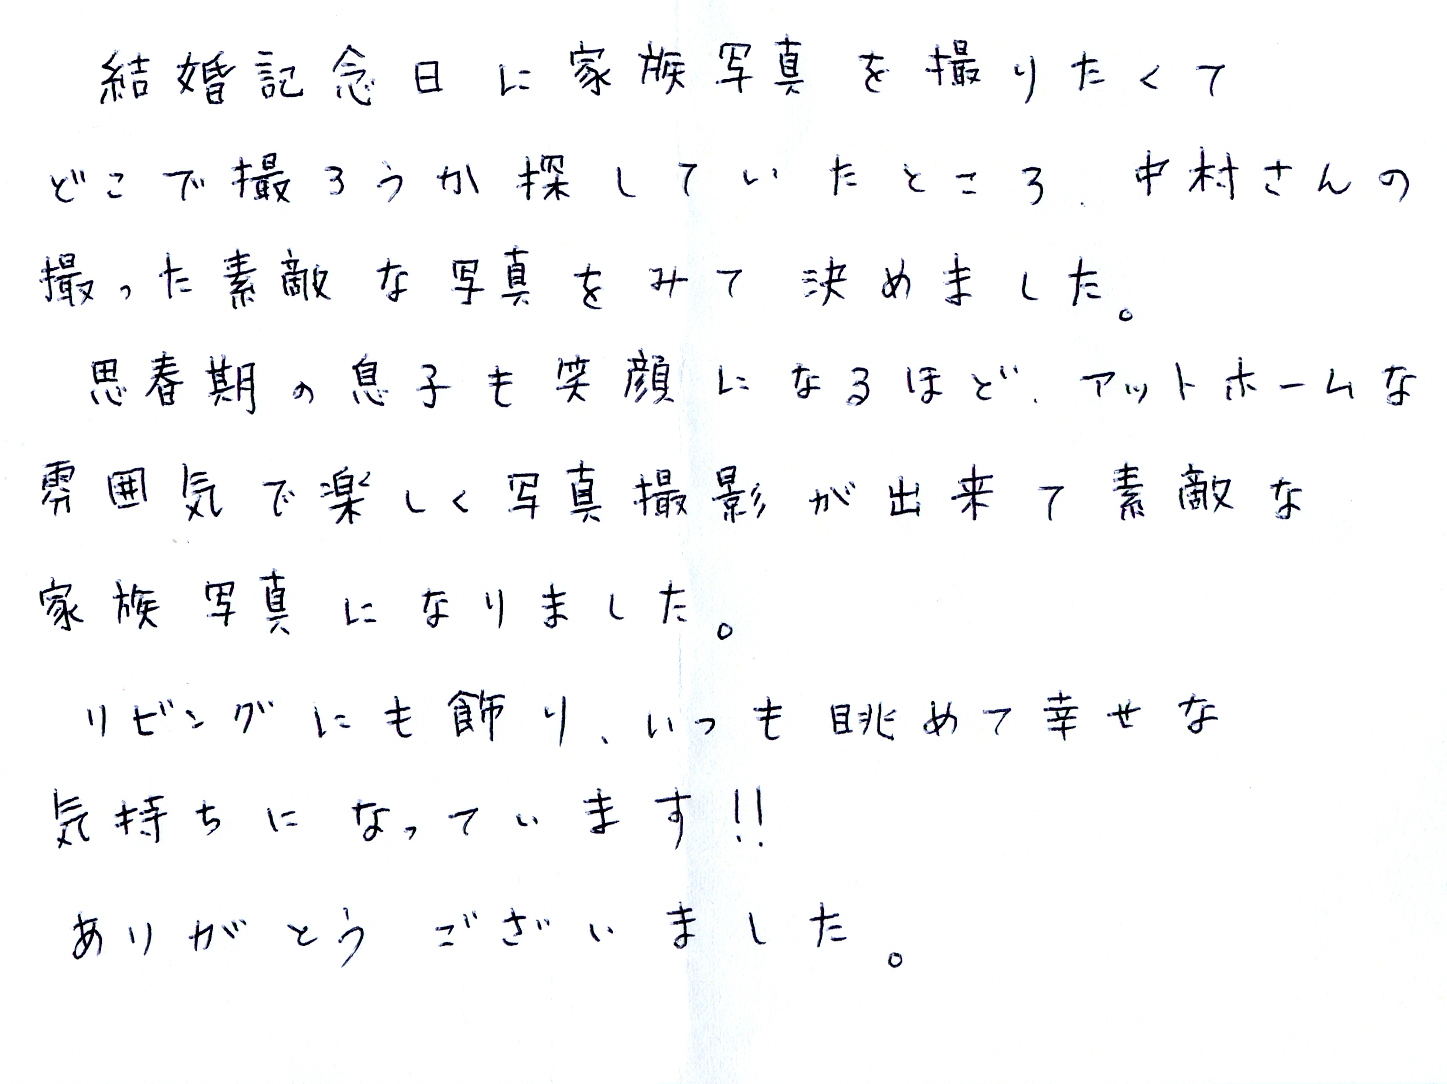 結婚記念日に家族写真を撮りたくて
どこで撮ろうか探していたところ、中村さんの
撮った素敵な写真をみて決めました。
思春期の息子も笑顔になるほど、アットホームな
雰囲気で楽しく写真撮影が出来て素敵な
家族写真になりました。
リビングにも飾り、いつも眺めて幸せな
気持ちになっています!!
ありがとうございました。